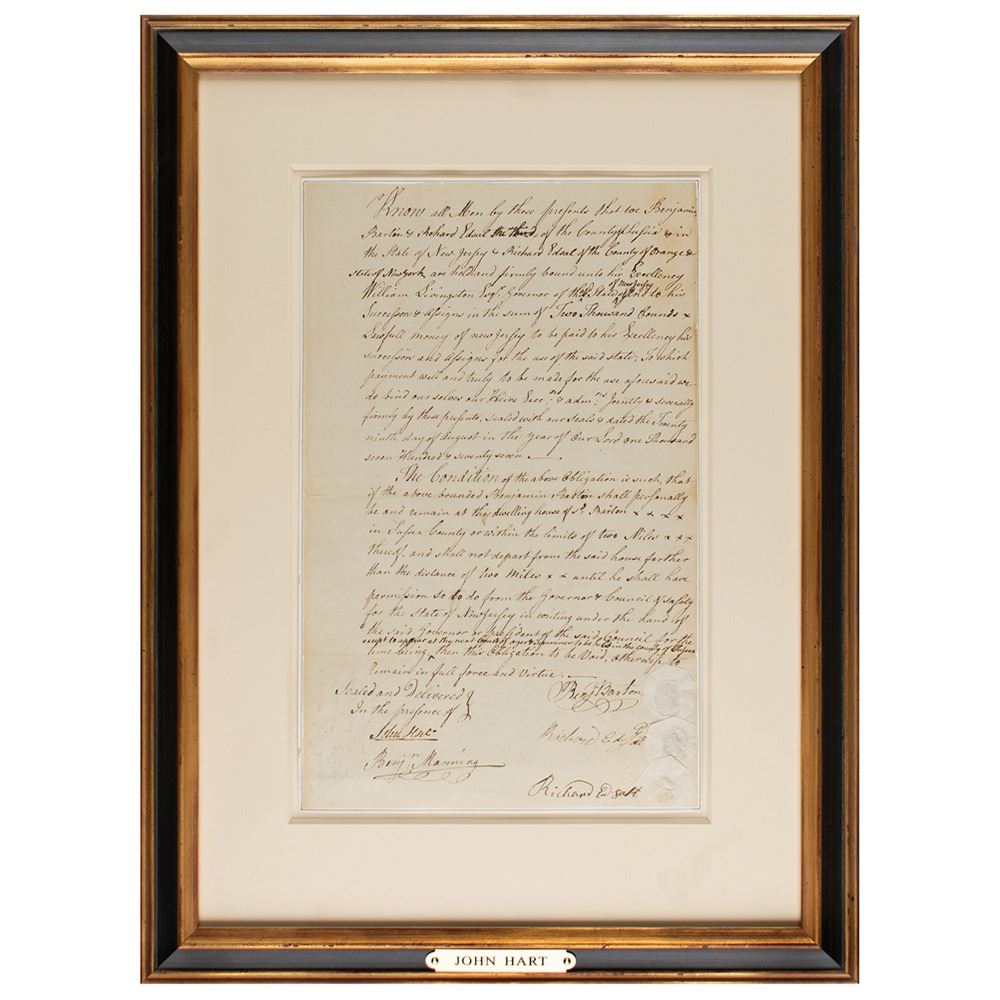 Know all Men by these presents that we Benjamin
Barton & Richard Edsal the third of the County of Sussex & in
the State of New Jersey & Richard Edsal of the County of Orange &
state of New York are held and firmly bound unto his Excellency
of New Jersey
William Livingston Esqr. Governor of the State and to his
Successors & Assigns in the sum of Two Thousand Pounds x
Lawfull money of new Jersey to be paid to his Excellency his
successors and Assigns for the use of the said state; To which
payment well and truly to be made for the use aforesaid we
do bind our selves our Heirs Execrs. & admrs. Jointly & severally
firmly by these presents, sealed with our Seals & dated the Twenty
ninth day of August in the year of Our Lord one Thousand
seven Hundred & seventy seven
The Condition of the above Obligation is such, that
if the above bounded Benjamin Barton shall personally
be and remain at the dwelling house of sd. Barton x x x x
in Sussex County or within the limits of two Miles x x x
thereof, and shall not depart from the said house farther
than the distance of two miles x x until he shall have
permission so to do from the Governor & Council of safety
for the State of New Jersey in writing under the hand of
the said Governor or president of the said Council for the
except to appear at the next Court of oyer & terminer to be held in the county of Sussex
time being, then this Obligation to be Void, otherwise to
Remain in full force and Virtue.
Sealed and Delivered
In the presence of
John Hart
Benjn. Manning
Benj Barton
Richard Edsall
Richard Edsall
JOHN HART